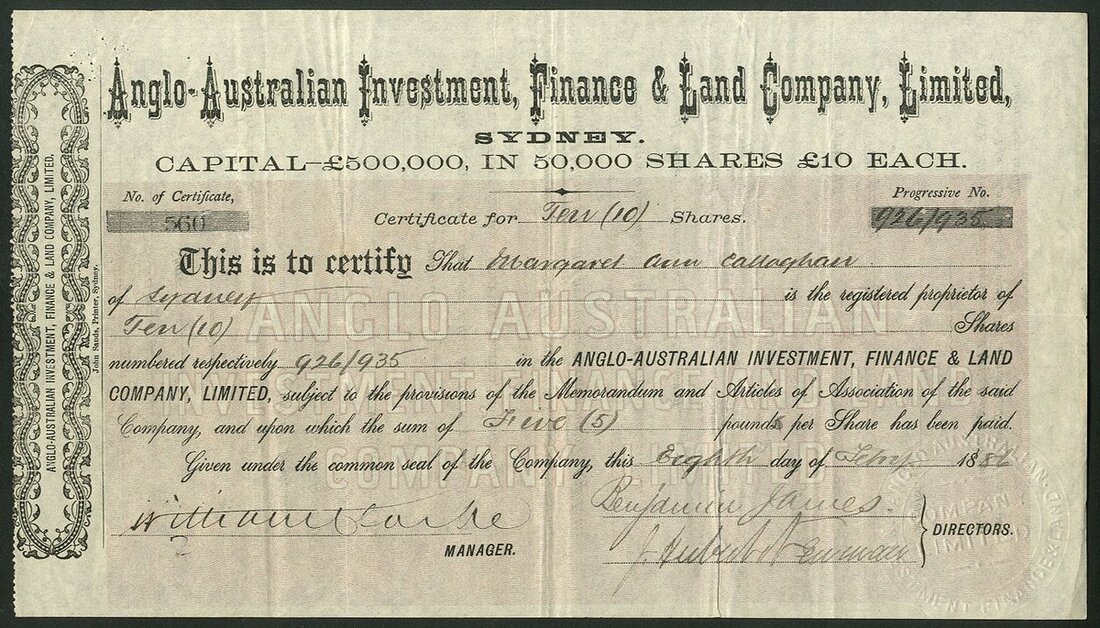 Anglo-Australian Investment, Finance & Land Company, Limited,
SYDNEY.
CAPITAL—£500,000, IN 50,000 SHARES £10 EACH.
No. of Certificate,
560
Certificate for Ten (10) Shares.
Progressive No.
926/935
This is to certify That Margaret Ann Callaghan
of Sydney is the registered proprietor of
Ten (10) Shares
numbered respectively 926/935 in the ANGLO-AUSTRALIAN INVESTMENT, FINANCE & LAND
COMPANY, LIMITED, subject to the provisions of the Memorandum and Articles of Association of the said
Company, and upon which the sum of Five (5) pounds per Share has been paid.
Given under the common seal of the Company, this Eighth day of Feby 1886
William Clarke
MANAGER.
Benjamin James.
J. Hubert
DIRECTORS.
ANGLO-AUSTRALIAN INVESTMENT, FINANCE & LAND COMPANY, LIMITED.
John Sands, Printer, Sydney.
ANGLO AUSTRALIAN
INVESTMENT FINANCE AND LAND
COMPANY LIMITED